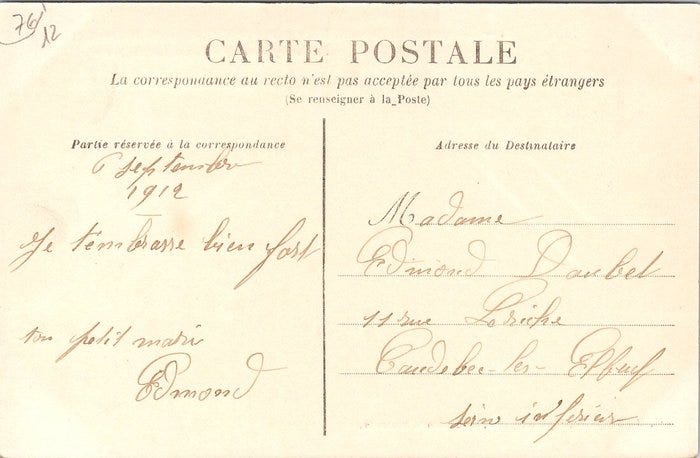 76
12
CARTE POSTALE
La correspondance au recto n'est pas acceptée par tous les pays étrangers
(Se renseigner à la Poste)
Partie réservée à la correspondance
6 septembre
1912
Je t'embrasse bien fort
ton petit mari
Edmond
Adresse du Destinataire
Madame
Edmond Daubet
11 rue
Caudebec-les-Elbeuf